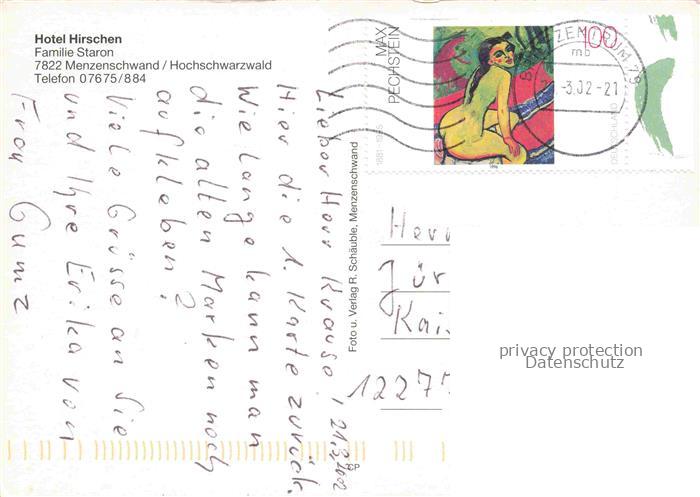 Hotel Hirschen
Familie Staron
7822 Menzenschwand / Hochschwarzwald
Telefon 07675/884
Lieber Herr Krause, 21.3.2002
Hier die 1. Karte zurück.
Wie lange kann man
die alten Marken noch
aufkleben?
Viele Grüsse an Sie
und Ihre Erika von
Frau Gumz
Foto u. Verlag R. Schäuble, Menzenschwand
MAX
PECHSTEIN
1881-1955
100
DEUTSCHLAND
1996
BRIEFZENTRUM 79
mb
-3.02-21
Herr
Für
Kai
12277
privacy protection
Datenschutz